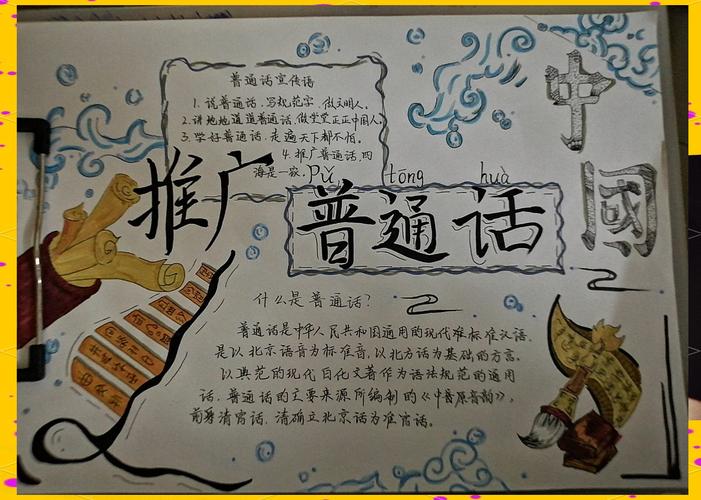 普通话宣传语
1. 说普通话,写规范字,做文明人。
2. 讲地地道道普通话,做堂堂正正中国人。
3. 学好普通话,走遍天下都不怕。
4. 推广普通话,四
海是一家。
中國
推广
pǔ tōng huà
普通话
什么是普通话?
普通话是中华人民共和国通用的现代标准汉语,
是以北京语音为标准音,以北方话为基础的方言。
以典范的现代白话文著作为语法规范的通用
话,普通话的主要来源所编制的《中原音韵》,
前身清官话,清确立北京话为准官话。